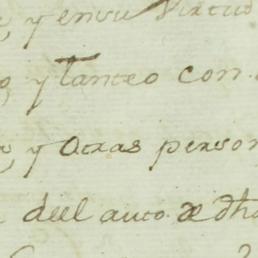 y ensu Virtud
y tanteo con
y Otras person
deel auto. de dho